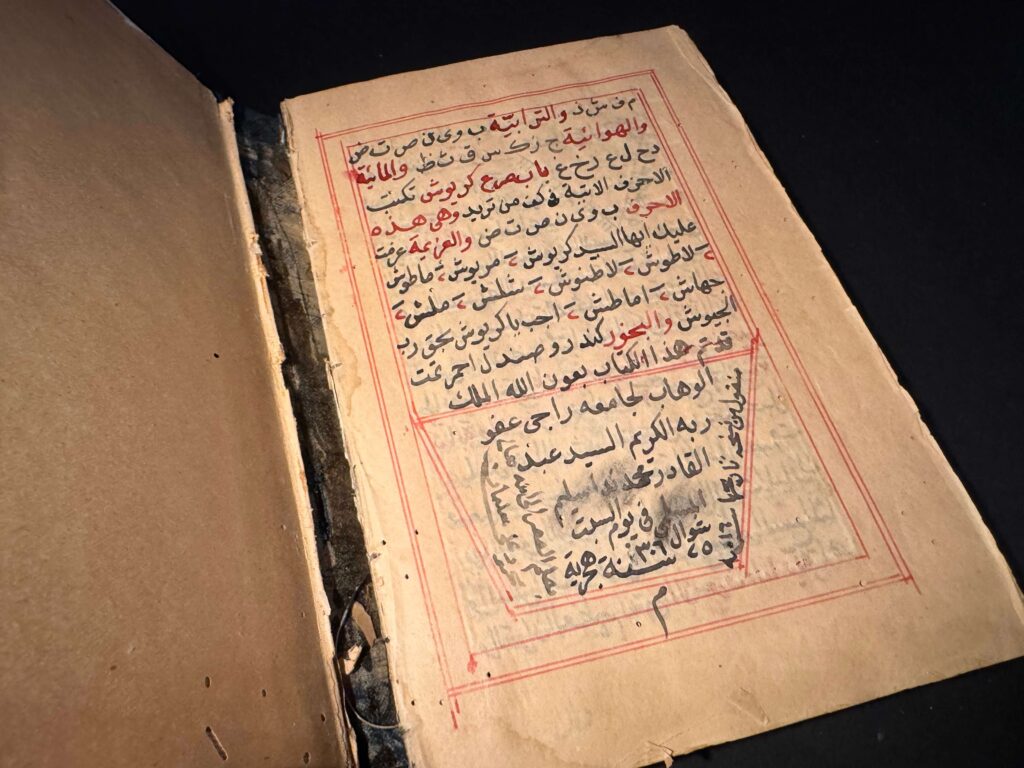 م ف ش ذ والترابيّة ب و ى ن ص ت ض
والهوائيّة ج ز ك س ق ث ظ والمائيّة
د ح ل ع ر خ غ باب صرع كريوش تكتب
الاحرف الاتية فى كف من تريد وهى هذه
الاحرف ب و ى ن ص ت ض والعزيمة عزمت
عليك ايها السيد كريوش ٢ مريوش ٢ ماطوش
٢ لاطوش ٢ لاطنوش ٢ شلش ٢ ملش ٢
جهاش ٢ اماطش ٢ اجب يا كريوش بحق رب
الجيوش والبخور كندر و صندل احمر تمت
تم هذا الكتاب بعون الله الملك
الوهاب لجامعه راجى عفو
ربه الكريم السيد عبد
القادر محمد
فى يوم السبت
٢٥ شوال
١٣٠٦ سنة هجرية
م
منقول من نسخة تاريخها
بقلم الفقير الى الله